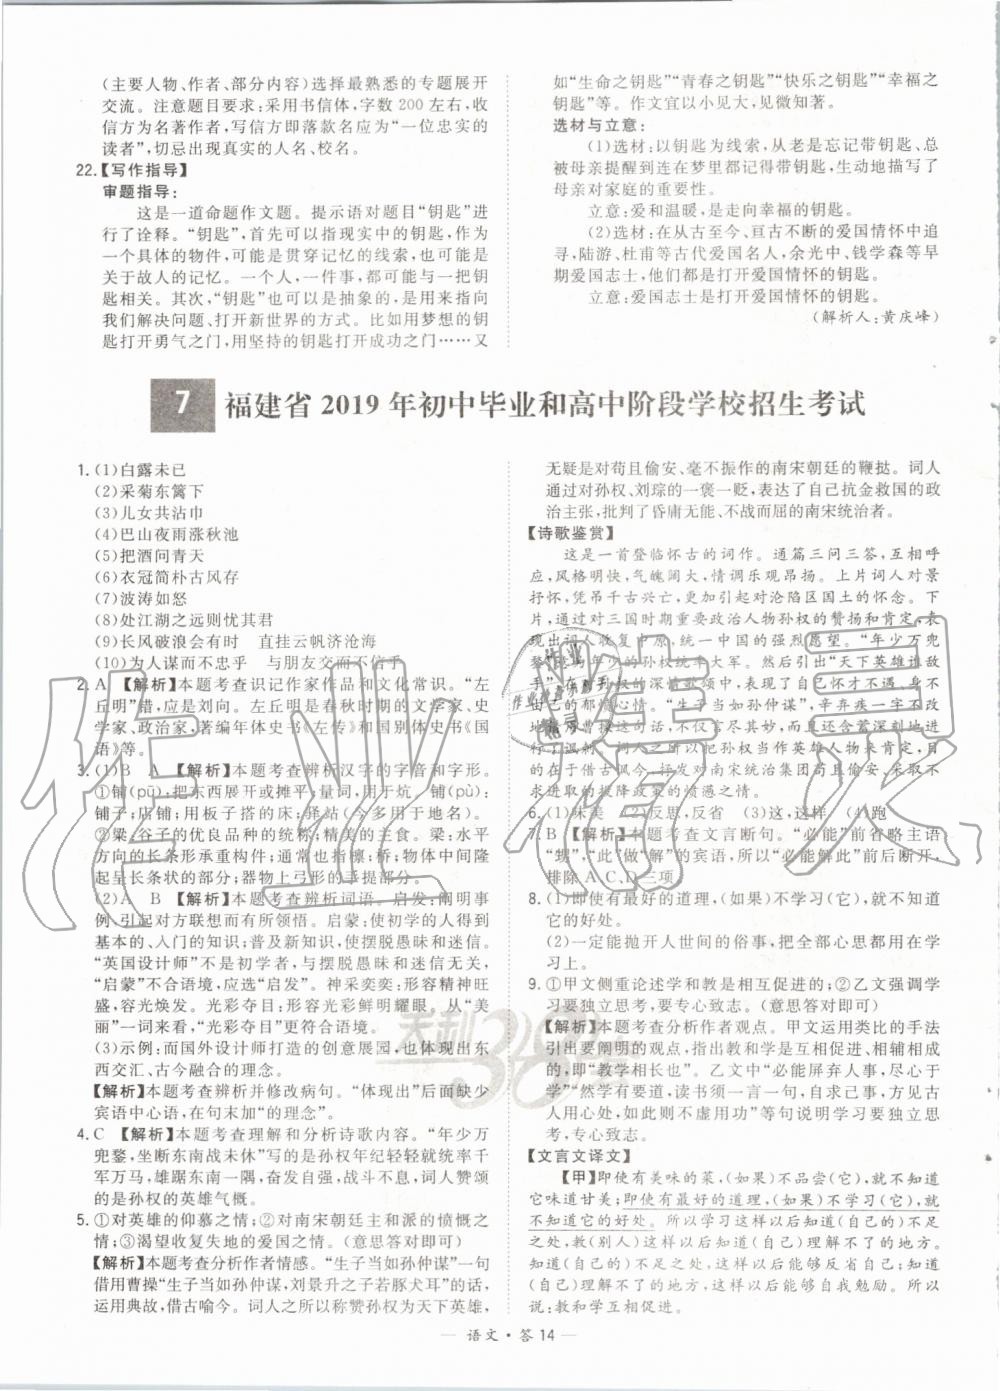 (主要人物、作者、部分内容)选择最熟悉的专题展开
交流。注意题目要求:采用书信体,字数 200 左右,收
信方为名著作者,写信方即落款名应为“一位忠实的
读者”,切忌出现真实的人名、校名。
22.【写作指导】
审题指导:
这是一道命题作文题。提示语对题目“钥匙”进
行了诠释。“钥匙”,首先可以指现实中的钥匙。作为
一个具体的物件,可能是贯穿记忆的线索,也可能是
关于故人的记忆。一个人,一件事,都可以与一把钥
匙相关。其次,“钥匙”也可以是抽象的,是用来指向
我们解决问题、打开新世界的方式。比如用梦想的钥
匙打开勇气之门,用坚持的钥匙打开成功之门……又
如“生命之钥匙”“青春之钥匙”“快乐之钥匙”“幸福之
钥匙”等。作文宜以小见大,见微知著。
选材与立意:
(1)选材:以钥匙为线索,从老是忘记带钥匙、总
被母亲提醒到连在梦里都记得带钥匙,生动地描写了
母亲对家庭的重要性。
立意:爱和温暖,是走向幸福的钥匙。
(2)选材:在从古至今、亘古不断的爱国情怀中追
寻,陆游、杜甫等古代爱国名人,余光中、钱学森等早
期爱国志士,他们都是打开爱国情怀的钥匙。
立意:爱国志士是打开爱国情怀的钥匙。
(解析人:黄庆峰)
7 福建省 2019 年初中毕业和高中阶段学校招生考试
1.(1)白露未已
(2)采菊东篱下
(3)儿女共沾巾
(4)巴山夜雨涨秋池
(5)把酒问青天
(6)衣冠简朴古风存
(7)波涛如怒
(8)处江湖之远则忧其君
(9)长风破浪会有时 直挂云帆济沧海
(10)为人谋而不忠乎 与朋友交而不信乎
2. A 【解析】本题考查识记作家作品和文化常识。“左
丘明”错,应是刘向。左丘明是春秋时期的文学家、史
学家、政治家,著编年体史书《左传》和国别体史书《国
语》等。
3.(1)B A 【解析】本题考查辨析汉字的字音和字形。
①铺(pū):把东西展开或摊平;量词,用于炕 铺(pù):
铺子;商店;用板子搭的床;驿站(今多用于地名)。
②粱:谷子的优良品种的统称;精美的主食。梁:水平
方向的长条形承重构件;通常也指檩;桥;物体中间隆
起呈长条状的部分;器物上弓形的手提部分。
(2)A B 【解析】本题考查辨析词语。启发:阐明事
例,引起对方联想而有所领悟。启蒙:使初学的人得到
基本的、入门的知识;普及新知识,使摆脱愚昧和迷信。
“英国设计师”不是初学者,与摆脱愚昧和迷信无关,
“启蒙”不符合语境,应选“启发”。神采奕奕:形容精神旺
盛,容光焕发。光彩夺目:形容光彩鲜明耀眼。从“美
丽”一词来看,“光彩夺目”更符合语境。
(3)示例:而国外设计师打造的创意展园,也体现出东
西交汇、古今融合的理念。
【解析】本题考查辨析并修改病句。“体现出”后面缺少
宾语中心语,在句末加“的理念”。
4. C 【解析】本题考查理解和分析诗歌内容。“年少万
兜鍪,坐断东南战未休”写的是孙权年纪轻轻就统率千
军万马,雄踞东南一隅,奋发自强,战斗不息,词人赞颂
的是孙权的英雄气概。
5. ①对英雄的仰慕之情;②对南宋朝廷主和派的愤慨之
情;③渴望收复失地的爱国之情。(意思答对即可)
【解析】本题考查分析作者情感。“生子当如孙仲谋”一句
借用曹操“生子当如孙仲谋,刘景升之子若豚犬耳”的话,
运用典故,借古喻今。词人之所以称赞孙权为天下英雄,
无疑是对苟且偷安、毫不振作的南宋朝廷的鞭挞。词人
通过对孙权、刘琮的一褒一贬,表达了自己抗金救国的政
治主张,批判了昏庸无能、不战而屈的南宋统治者。
【诗歌鉴赏】
这是一首登临怀古的词作。通篇三问三答,互相呼
应,风格明快,气魄阔大,情调乐观昂扬。上片词人对景
抒怀,凭吊千古兴亡,更加引起对沦陷区国土的怀念。下
片,通过对三国时期重要政治人物孙权的歌颂,表
现出词人收复中原,统一中国的强烈愿望。“年少万兜
鍪”是写年少的孙权统率大军。然后引出“天下英雄谁敌
手”,在对孙权的深情歌颂中,反映了自己怀才不遇、身不
逢时的郁懑心情。“生子当如孙仲谋”,辛弃疾一字不改
地将曹操这句话照录下来,不仅自然贴切,而且还含蓄深刻地
进行了讽刺。词人之所以把孙权当作英雄人物来肯定,目
的在于借古讽今,抒发对南宋统治集团苟且偷安、不
求进取的投降政策的愤懑之情。
6.(1)味美 (2)反思,反省 (3)这,这样 (4)跑
7. B 【解析】本题考查文言断句。“必能”前省略主语
“甥”,“此”做“解”的宾语,所以“必能解此”前后断开,
排除 A、C、D 三项。
8.(1)即使有最好的道理,(如果)不学习(它),就不知道
它的好处。
(2)一定能抛开人世间的俗事,把全部心思都用在学
习上。
9. ①甲文侧重论述学和教是相互促进的;②乙文强调学
习要独立思考,要专心致志。(意思答对即可)
【解析】本题考查分析作者观点。甲文运用类比的手法
引出要阐明的观点,指出教和学是互相促进、相辅相成
的,即“教学相长也”。乙文“必能屏弃人事,尽心于
学”“然学有要道,读书须一言一句,自求己事,方见古
人用心处,如此则不虚用功”等句说明学习要独立思
考,专心致志。
【文言文译文】
【甲】即使有美味的菜,(如果)不品尝(它),就不知道
它味道甘美;即使有最好的道理,(如果)不学习(它),就
不知道它的好处。所以学习这样以后知道(自己的)不足
之处,教(别人)这样以后知道(自己)理解不了的地方。
知道(自己的)不足之处,这样以后能够反省自己;知道
(自己)理解不了的地方,这样以后能够自我勉励。所以
说:教和学互相促进。
— 语文·答 14 —
作业精灵
天利38套